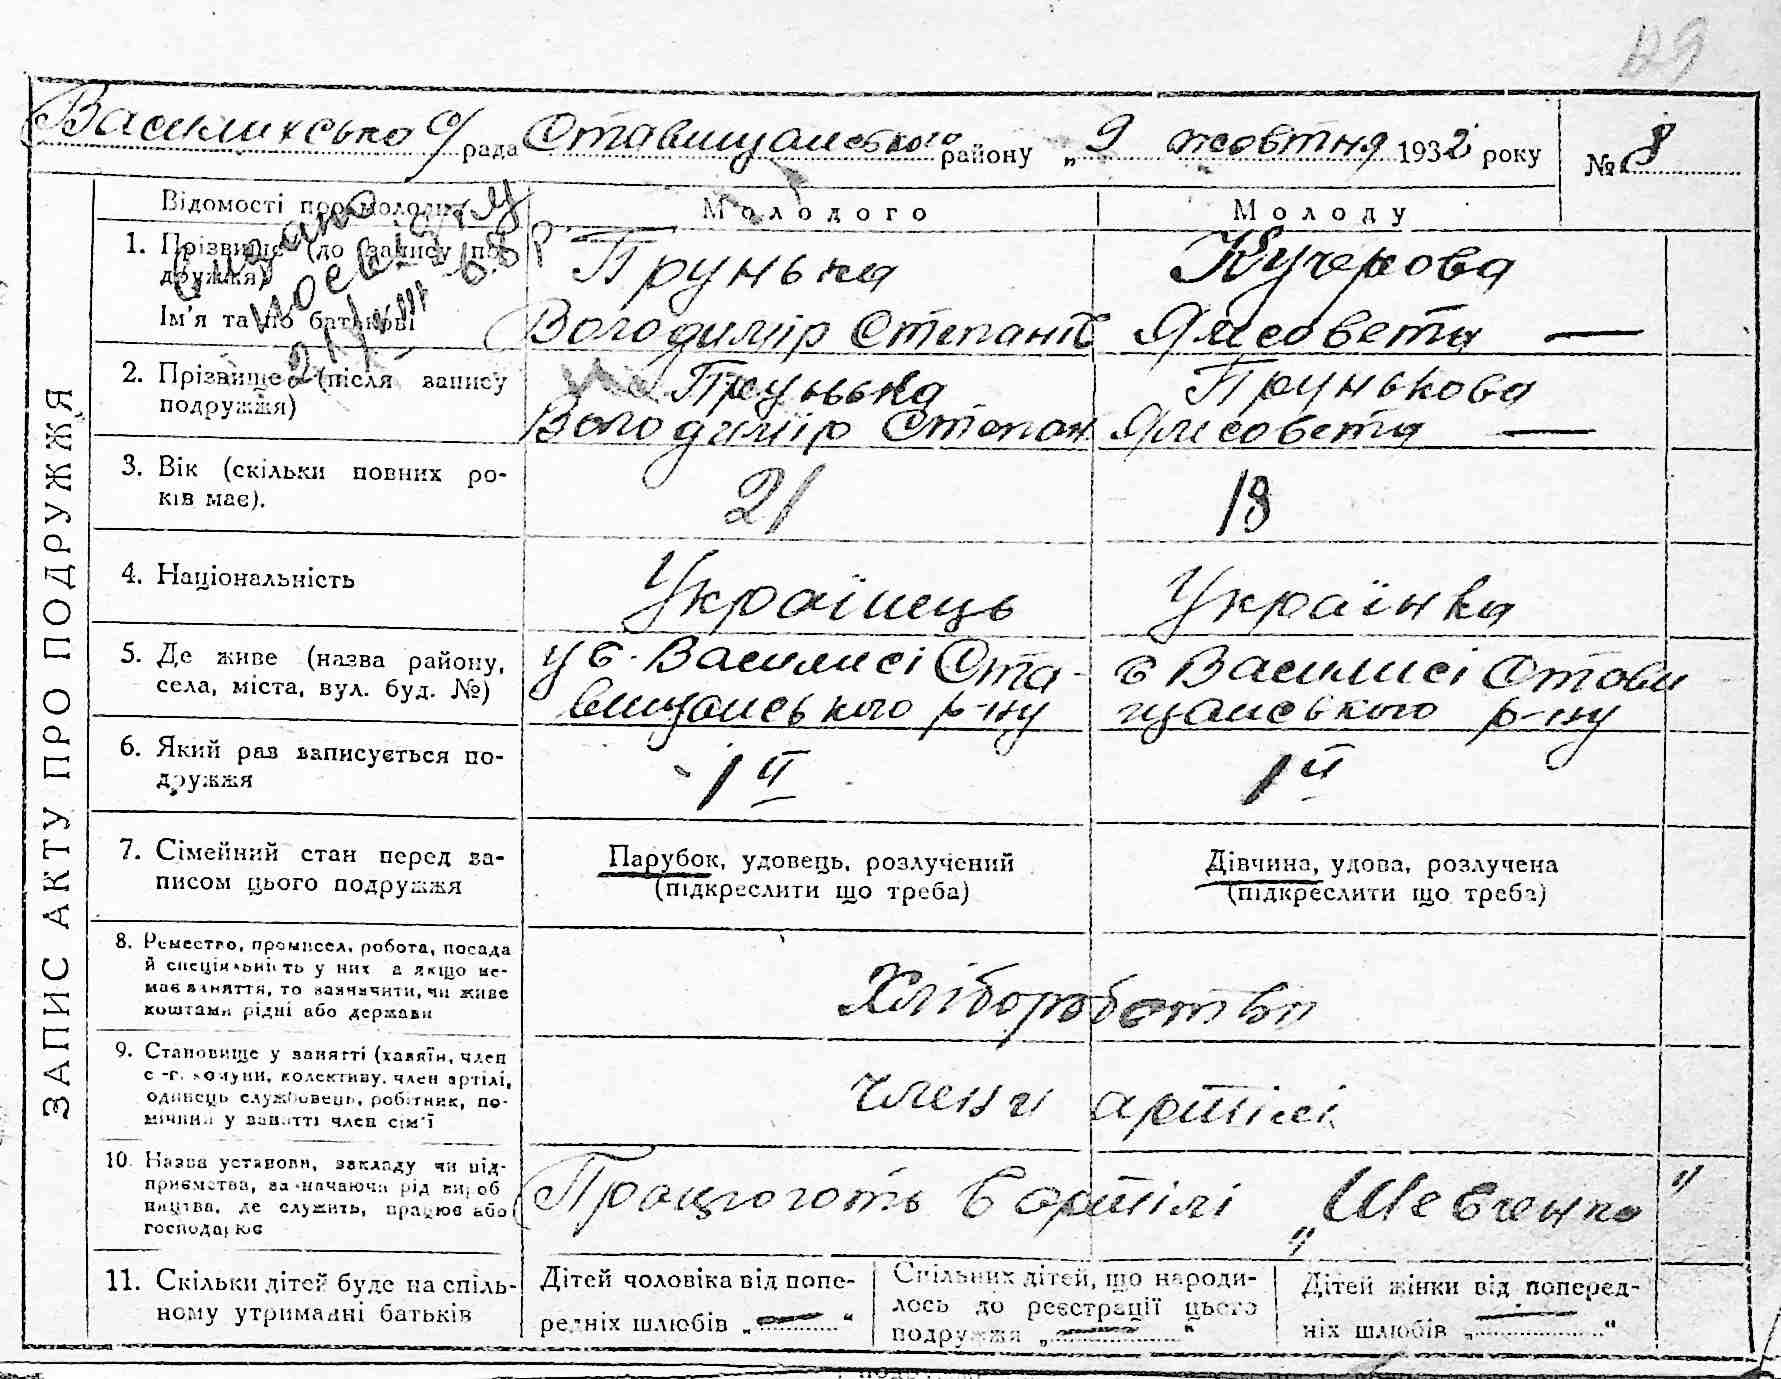 129
Василихсько с/рада Ставищанського району „9 жовтня 1932 року № 8
Відомості про молодих
Молодого
Молоду
видано
посвідку
21/VIII 68 р.
1. Прізвище (до запису по-
дружжя)
Ім'я та по батькові
Прунька
Володимір Степані
Кучерова
Ялисовета —
2. Прізвище (після запису
подружжя)
Прунька
Володимір Степан
Прунькова
Ялисовета —
3. Вік (скільки повних ро-
ків має).
21
18
4. Національність
Українець
Українка
5. Де живе (назва району,
села, міста, вул. буд. №)
у с. Василисі Ста-
вищанського р-ну
с Василисі Стави
щанського р-ну
6. Який раз записується по-
дружжя
1й
1й
7. Сімейний стан перед за-
писом цього подружжя
Парубок, удовець, розлучений
(підкреслити що треба)
Дівчина, удова, розлучена
(підкреслити що треба)
8. Ремество, промисел, робота, посада
й спеціяльність у них а якщо не-
має заняття, то зазначити, чи живе
коштами рідні або держави
Хліборобство
9. Становище у занятті (хазяїн, член
с.-г. комуни, колективу, член артілі,
одинець службовець, робітник, по-
мічний у занятті член сім'ї
члени артілі
10. Назва установи, закладу чи під-
приємства, зазначаючи рід вироб
ництва, де служить, працює або
господарює
Працюють в артілі „Шевченко"
11. Скільки дітей буде на спіль-
ному утриманні батьків
Дітей чоловіка від попе-
редніх шлюбів „—"
Спільних дітей, що народи-
лось до реєстрації цього
подружжя „—"
Дітей жінки від поперед-
ніх шлюбів „—"
ЗАПИС АКТУ ПРО ПОДРУЖЖЯ